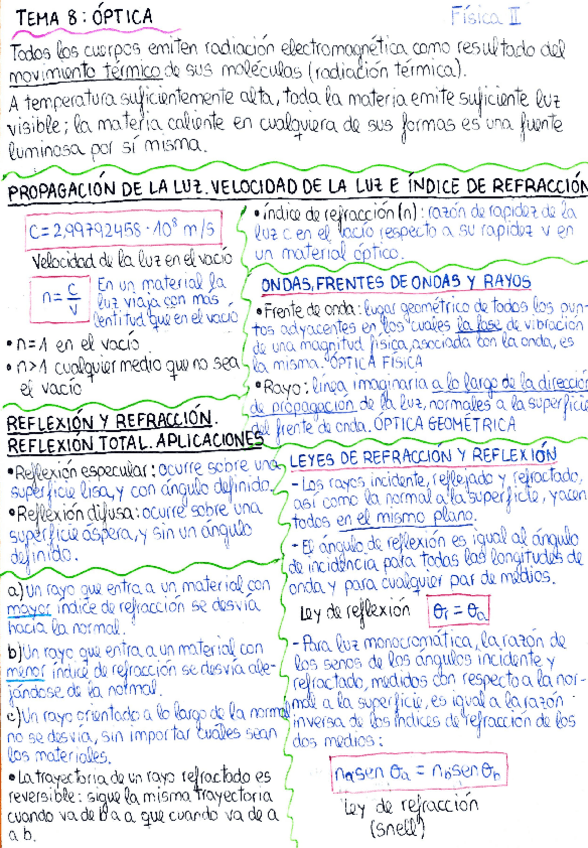 TEMA 8: ÓPTICA
Física II
Todos los cuerpos emiten radiación electromagnética como resultado del
movimiento térmico de sus moléculas (radiación térmica).
A temperatura suficientemente alta, toda la materia emite suficiente luz
visible; la materia caliente en cualquiera de sus formas es una fuente
luminosa por sí misma.
PROPAGACIÓN DE LA LUZ. VELOCIDAD DE LA LUZ E ÍNDICE DE REFRACCIÓN
C = 2,99792458 · 10⁸ m/s
Velocidad de la luz en el vacío
n = c/v
En un material la
luz viaja con más
lentitud que en el vacío
• n=1 en el vacío
• n>1 cualquier medio que no sea
el vacío
• índice de refracción (n): razón de rapidez de la
luz c en el vacío respecto a su rapidez v en
un material óptico.
ONDAS, FRENTES DE ONDAS Y RAYOS
• Frente de onda: lugar geométrico de todos los pun-
tos adyacentes en los cuales la fase de vibración
de una magnitud física, asociada con la onda, es
la misma. ÓPTICA FÍSICA
• Rayo: línea imaginaria a lo largo de la dirección
de propagación de la luz, normales a la superficie
del frente de onda. ÓPTICA GEOMÉTRICA
REFLEXIÓN Y REFRACCIÓN.
REFLEXIÓN TOTAL. APLICACIONES
• Reflexión especular: ocurre sobre una
superficie lisa, y con ángulo definido.
• Reflexión difusa: ocurre sobre una
superficie áspera, y sin un ángulo
definido.
a) un rayo que entra a un material con
mayor índice de refracción se desvía
hacia la normal.
b) Un rayo que entra a un material con
menor índice de refracción se desvía ale-
jándose de la normal.
c) Un rayo orientado a lo largo de la normal
no se desvía, sin importar cuáles sean
los materiales.
• La trayectoria de un rayo refractado es
reversible: sigue la misma trayectoria
cuando va de b a a que cuando va de a
a b.
LEYES DE REFRACCIÓN Y REFLEXIÓN
- Los rayos incidente, reflejado y refractado,
así como la normal a la superficie, yacen
todos en el mismo plano.
- El ángulo de reflexión es igual al ángulo
de incidencia para todas las longitudes de
onda y para cualquier par de medios.
Ley de reflexión θr = θa
- Para luz monocromática, la razón de
los senos de los ángulos incidente y
refractado, medidos con respecto a la nor-
mal a la superficie, es igual a la razón
inversa de los índices de refracción de los
dos medios:
na sen θa = nb sen θb
Ley de refracción
(Snell)